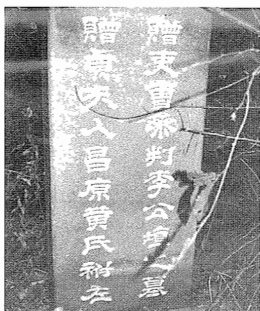 贈吏曹參判李公之墓
贈貞夫人昌原黄氏祔左